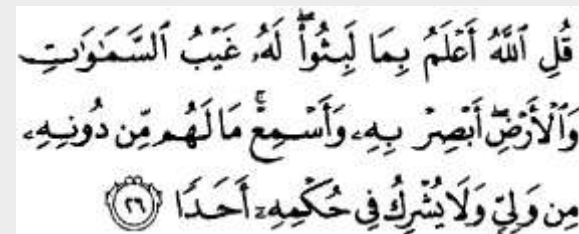 قُلِ ٱللَّهُ أَعۡلَمُ بِمَا لَبِثُواْۖ لَهُۥ غَيۡبُ ٱلسَّمَٰوَٰتِ
وَٱلۡأَرۡضِۖ أَبۡصِرۡ بِهِۦ وَأَسۡمِعۡۚ مَا لَهُم مِّن دُونِهِۦ
مِن وَلِيّٖ وَلَا يُشۡرِكُ فِي حُكۡمِهِۦٓ أَحَدٗا ٢٦